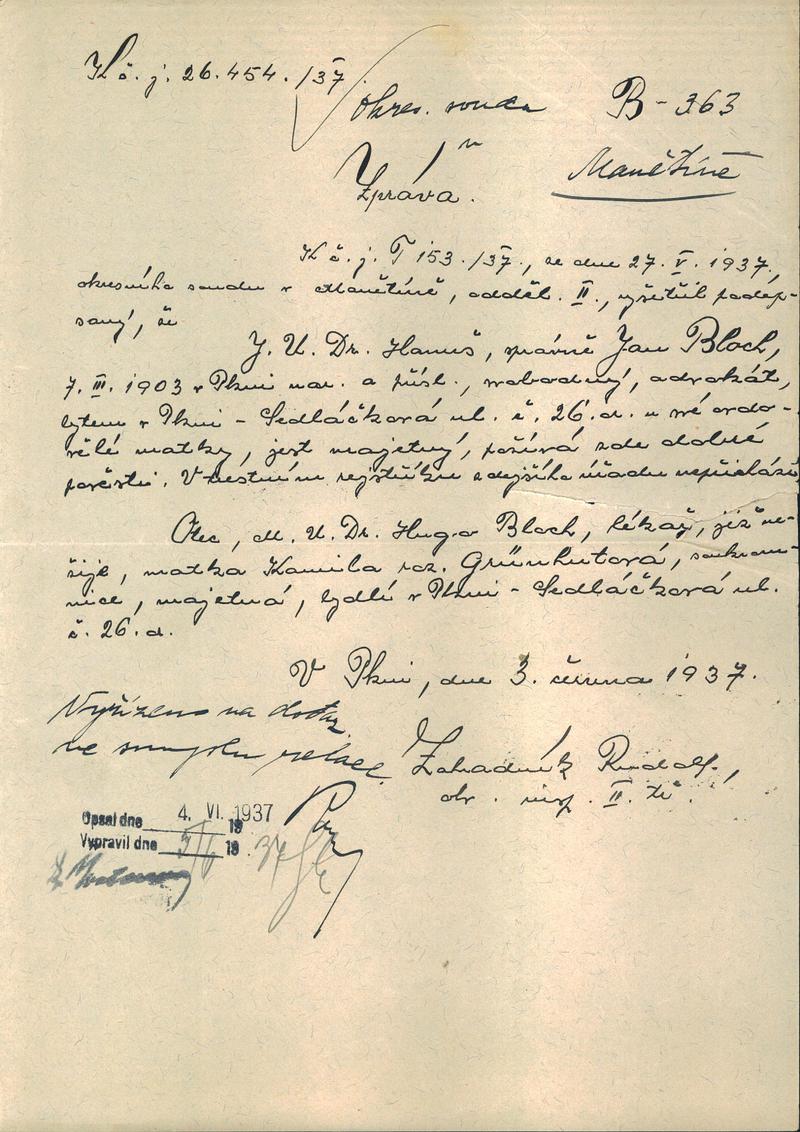 K č. j. 26.454./37
Okres. soudu B - 363
v
Manětíně
Zpráva.
K č. j. T 153./37., ze dne 27. V. 1937,
okresního soudu v Manětíně, odděl. II., vyšetřil podep-
saný, že
J. U. Dr. Hanuš, správně Jan Bloch,
7. III. 1903 v Plzni nar. a přísl., svobodný, advokát,
bytem v Plzni - Sedláčková ul. č. 26.a. u své ovdo-
vělé matky, jest majetný, požívá zde dobré
pověsti. V trestním rejstříku zdejšího úřadu nepřichází.
Otec, M. U. Dr. Hugo Bloch, lékař, již ne-
žije, matka Kamila roz. Grünhutová, soukrom-
nice, majetná, bydlí v Plzni - Sedláčková ul.
č. 26.a.
V Plzni, dne 3. června 1937.
Vyřízeno na dotaz
ve smyslu relace
Zahradník Rudolf,
obv. insp. II. tř.
Opsal dne 4. VI. 1937 19
Vypravil dne 19 37